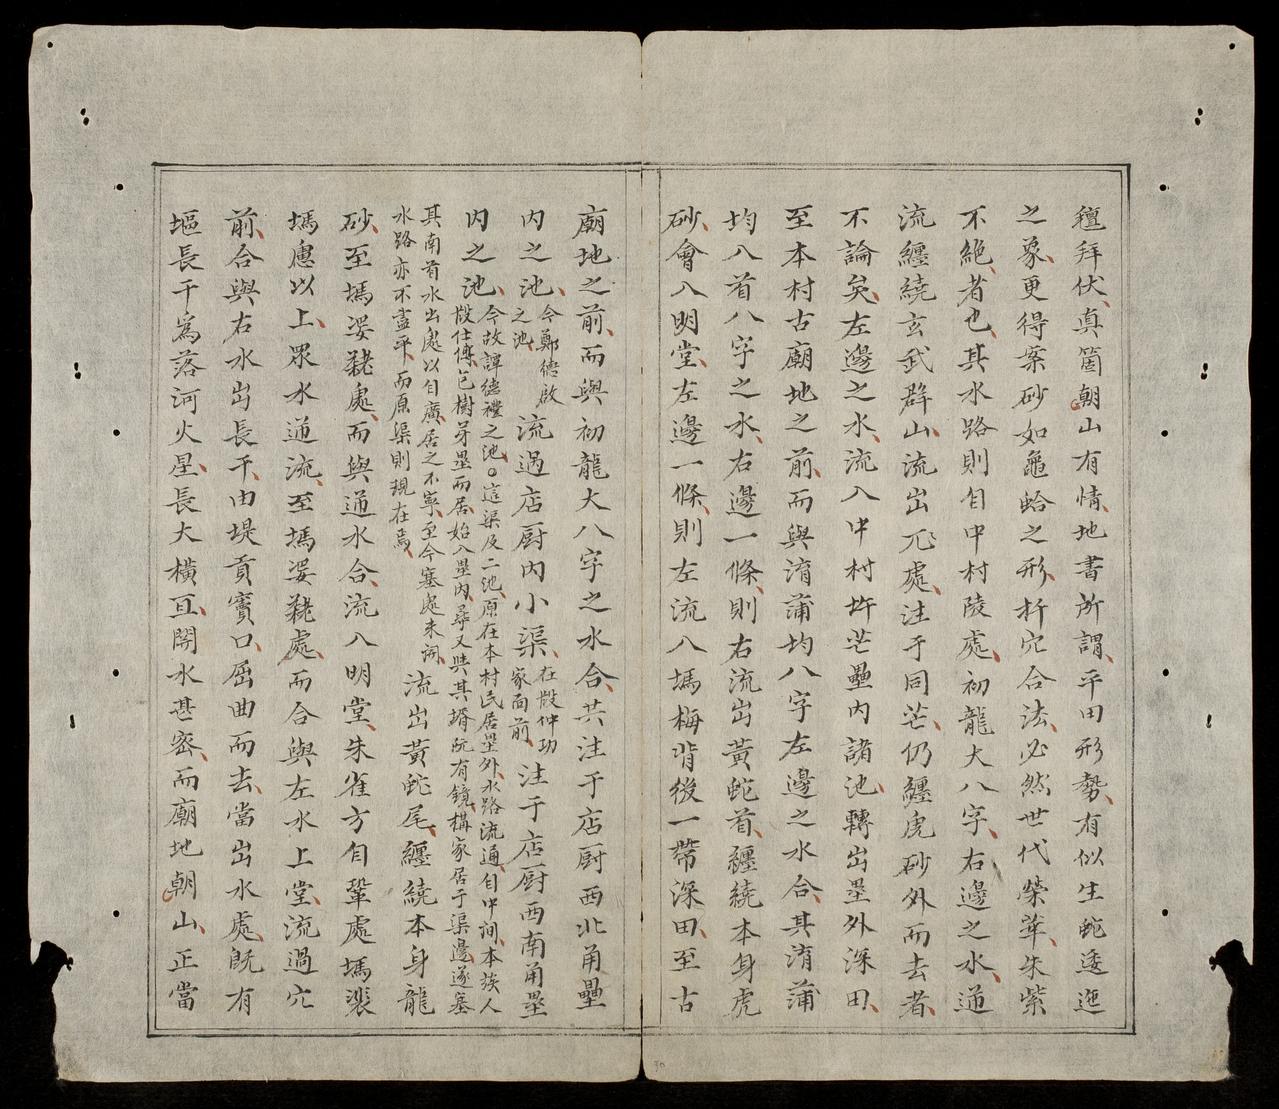 穜拜伏真箇朝山有情地書所謂平田形勢有似生蛇逶迤
之象更得案砂如龜蛤之形析穴合法必然世代榮華朱紫
不絶者也其水路則自中村陵處初龍大八字右邊之水通
流纏繞玄武群山流出兀處注于同芒仍纏虎砂外而去者
不論矣左邊之水流入中村圻芒壘内諸池轉出壘外深田
至本村古廟地之前而與淯蒲均八字左邊之水合其淯蒲
均八首八字之水右邊一條則右流出黄蛇首纏繞本身虎
砂會入明堂左邊一條則左流入𡏽梅背後一帶深田至古
廟地之前而與初龍大八字之水合共注于店厨西北角壘
内之池今鄭德啟之池流過店厨内小渠在殷仲功家面前注于店厨西南角壘
内之池今故諱德禮之池○這渠及二池原在本村民居壘外水路流通自中間本族人
殷仕傳包樹芽壘而居始入壘内尋又與其壻阮有鏡構家居于渠邊遂塞
其南首水出處以自廣居之不寧至今塞處未開
水路亦不盡平而原渠則現在焉流出黄蛇尾纏繞本身龍
砂至𡏽婜𦓅處而與通水合流入明堂朱雀方自鞏處𡏽裴
𡏽慮以上眾水通流至𡏽婜𦓅處而合與左水上堂流過穴
前合與右水出長干由堤貢竇口屈曲而去當出水處旣有
塸長干爲落河火星長大橫亙關水甚密而廟地朝山正當